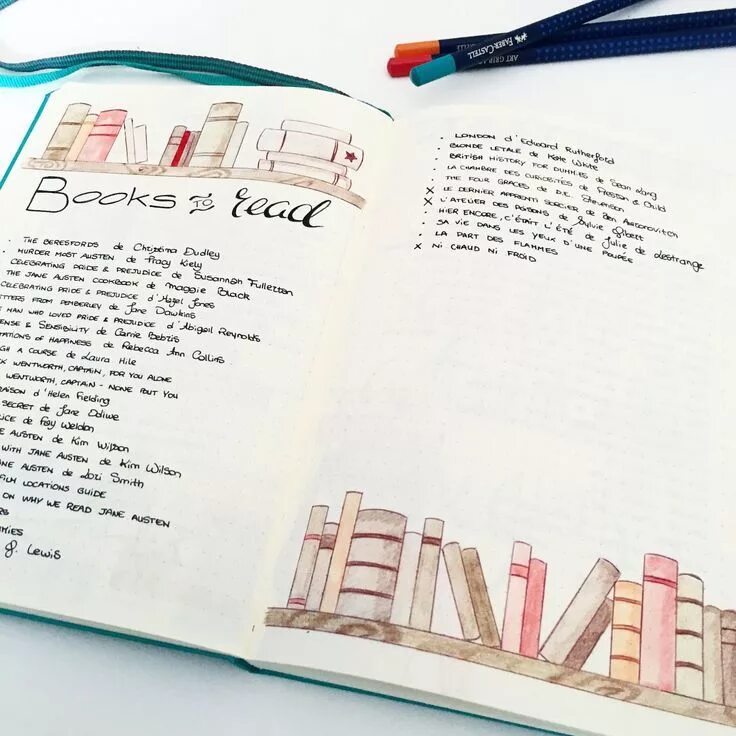 BOOKS TO READ
THE BERESFORDS de Christina Dudley
MURDER MOST AUSTEN de Tracy Kiely
CELEBRATING PRIDE & PREJUDICE de Susannah Fullerton
THE JANE AUSTEN COOKBOOK de Maggie Black
CELEBRATING PRIDE & PREJUDICE d'Hazel Jones
TTERS FROM PEMBERLEY de Jane Dawkins
MAN WHO LOVED PRIDE & PREJUDICE d'Abigail Reynolds
ENSE & SENSIBILITY de Carrie Bebris
TATIONS OF HAPPINESS de Rebecca Ann Collins
GH A COURSE de Laura Hile
WENTWORTH, CAPTAIN, FOR YOU ALONE
WENTWORTH, CAPTAIN - NONE BUT YOU
RAISON d'Helen Fielding
SECRET de Jane Odiwe
ICE de Fay Weldon
E AUSTEN de Kim Wilson
WITH JANE AUSTEN de Kim Wilson
NE AUSTEN de Lori Smith
FILM LOCATIONS GUIDE
ON WHY WE READ JANE AUSTEN
MMIES
J. Lewis
LONDON d'Edward Rutherford
BLONDE LETALE de Kate White
BRITISH HISTORY FOR DUMMIES de Sean Lang
LA CHAMBRE DES CURIOSITES de Preston & Child
THE FOUR GRACES de D.E. Stevenson
X LE DERNIER APPRENTI SORCIER de Ben Aaronovitch
X L'ATELIER DES POISONS de Sylvie Gibert
HIER ENCORE, C'ÉTAIT L'ÉTÉ de Julie de Lestrange
SA VIE DANS LES YEUX D'UNE POUPÉE
LA PART DES FLAMMES
X NI CHAUD NI FROID
FABER-CASTELL
ART GRIP